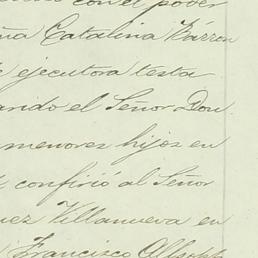 con el poder
ña Catalina Barron
ejecutora testa
ando el Señor Don
menores hijos en
confirió al Señor
uez Villanueva en
Francisco Allsopp